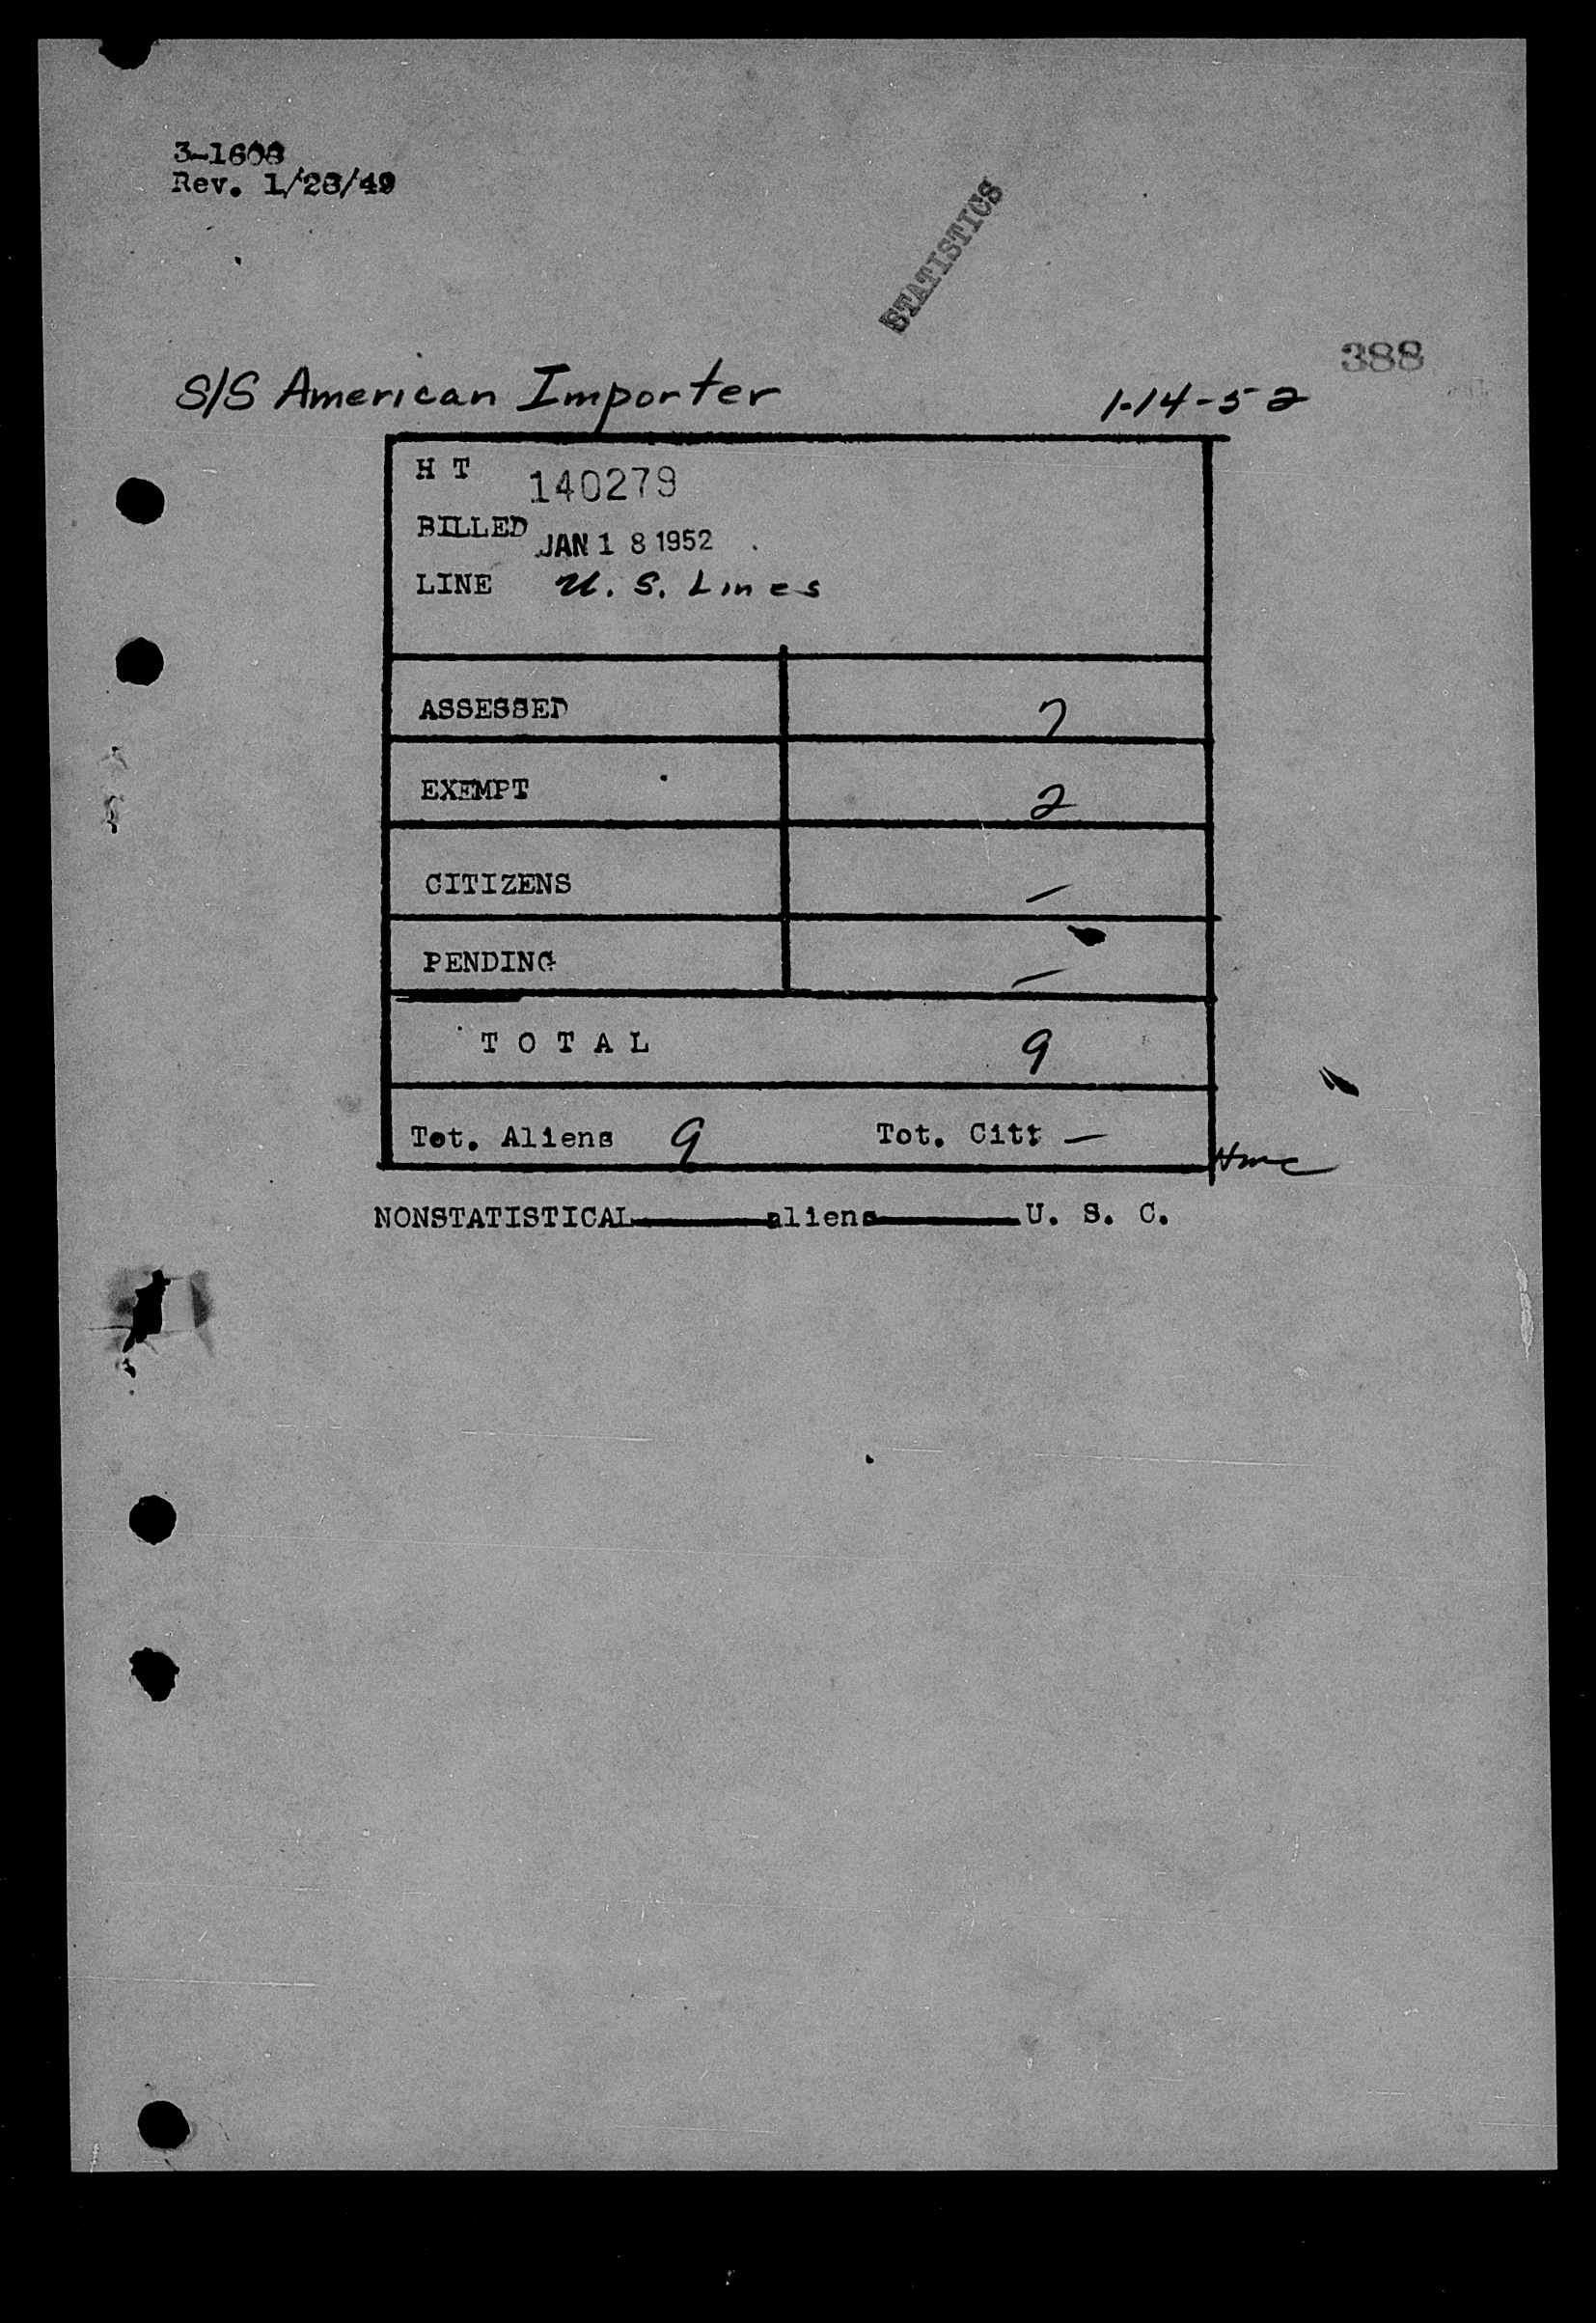 3-1608
Rev. 1/28/49
STATISTICS
388
S/S American Importer 1-14-52
H T 140279
BILLED JAN 18 1952
LINE U. S. Lines
ASSESSED 7
EXEMPT 2
CITIZENS —
PENDING —
T O T A L 9
Tot. Aliens 9 Tot. Cit: —
NONSTATISTICAL aliens U. S. C.